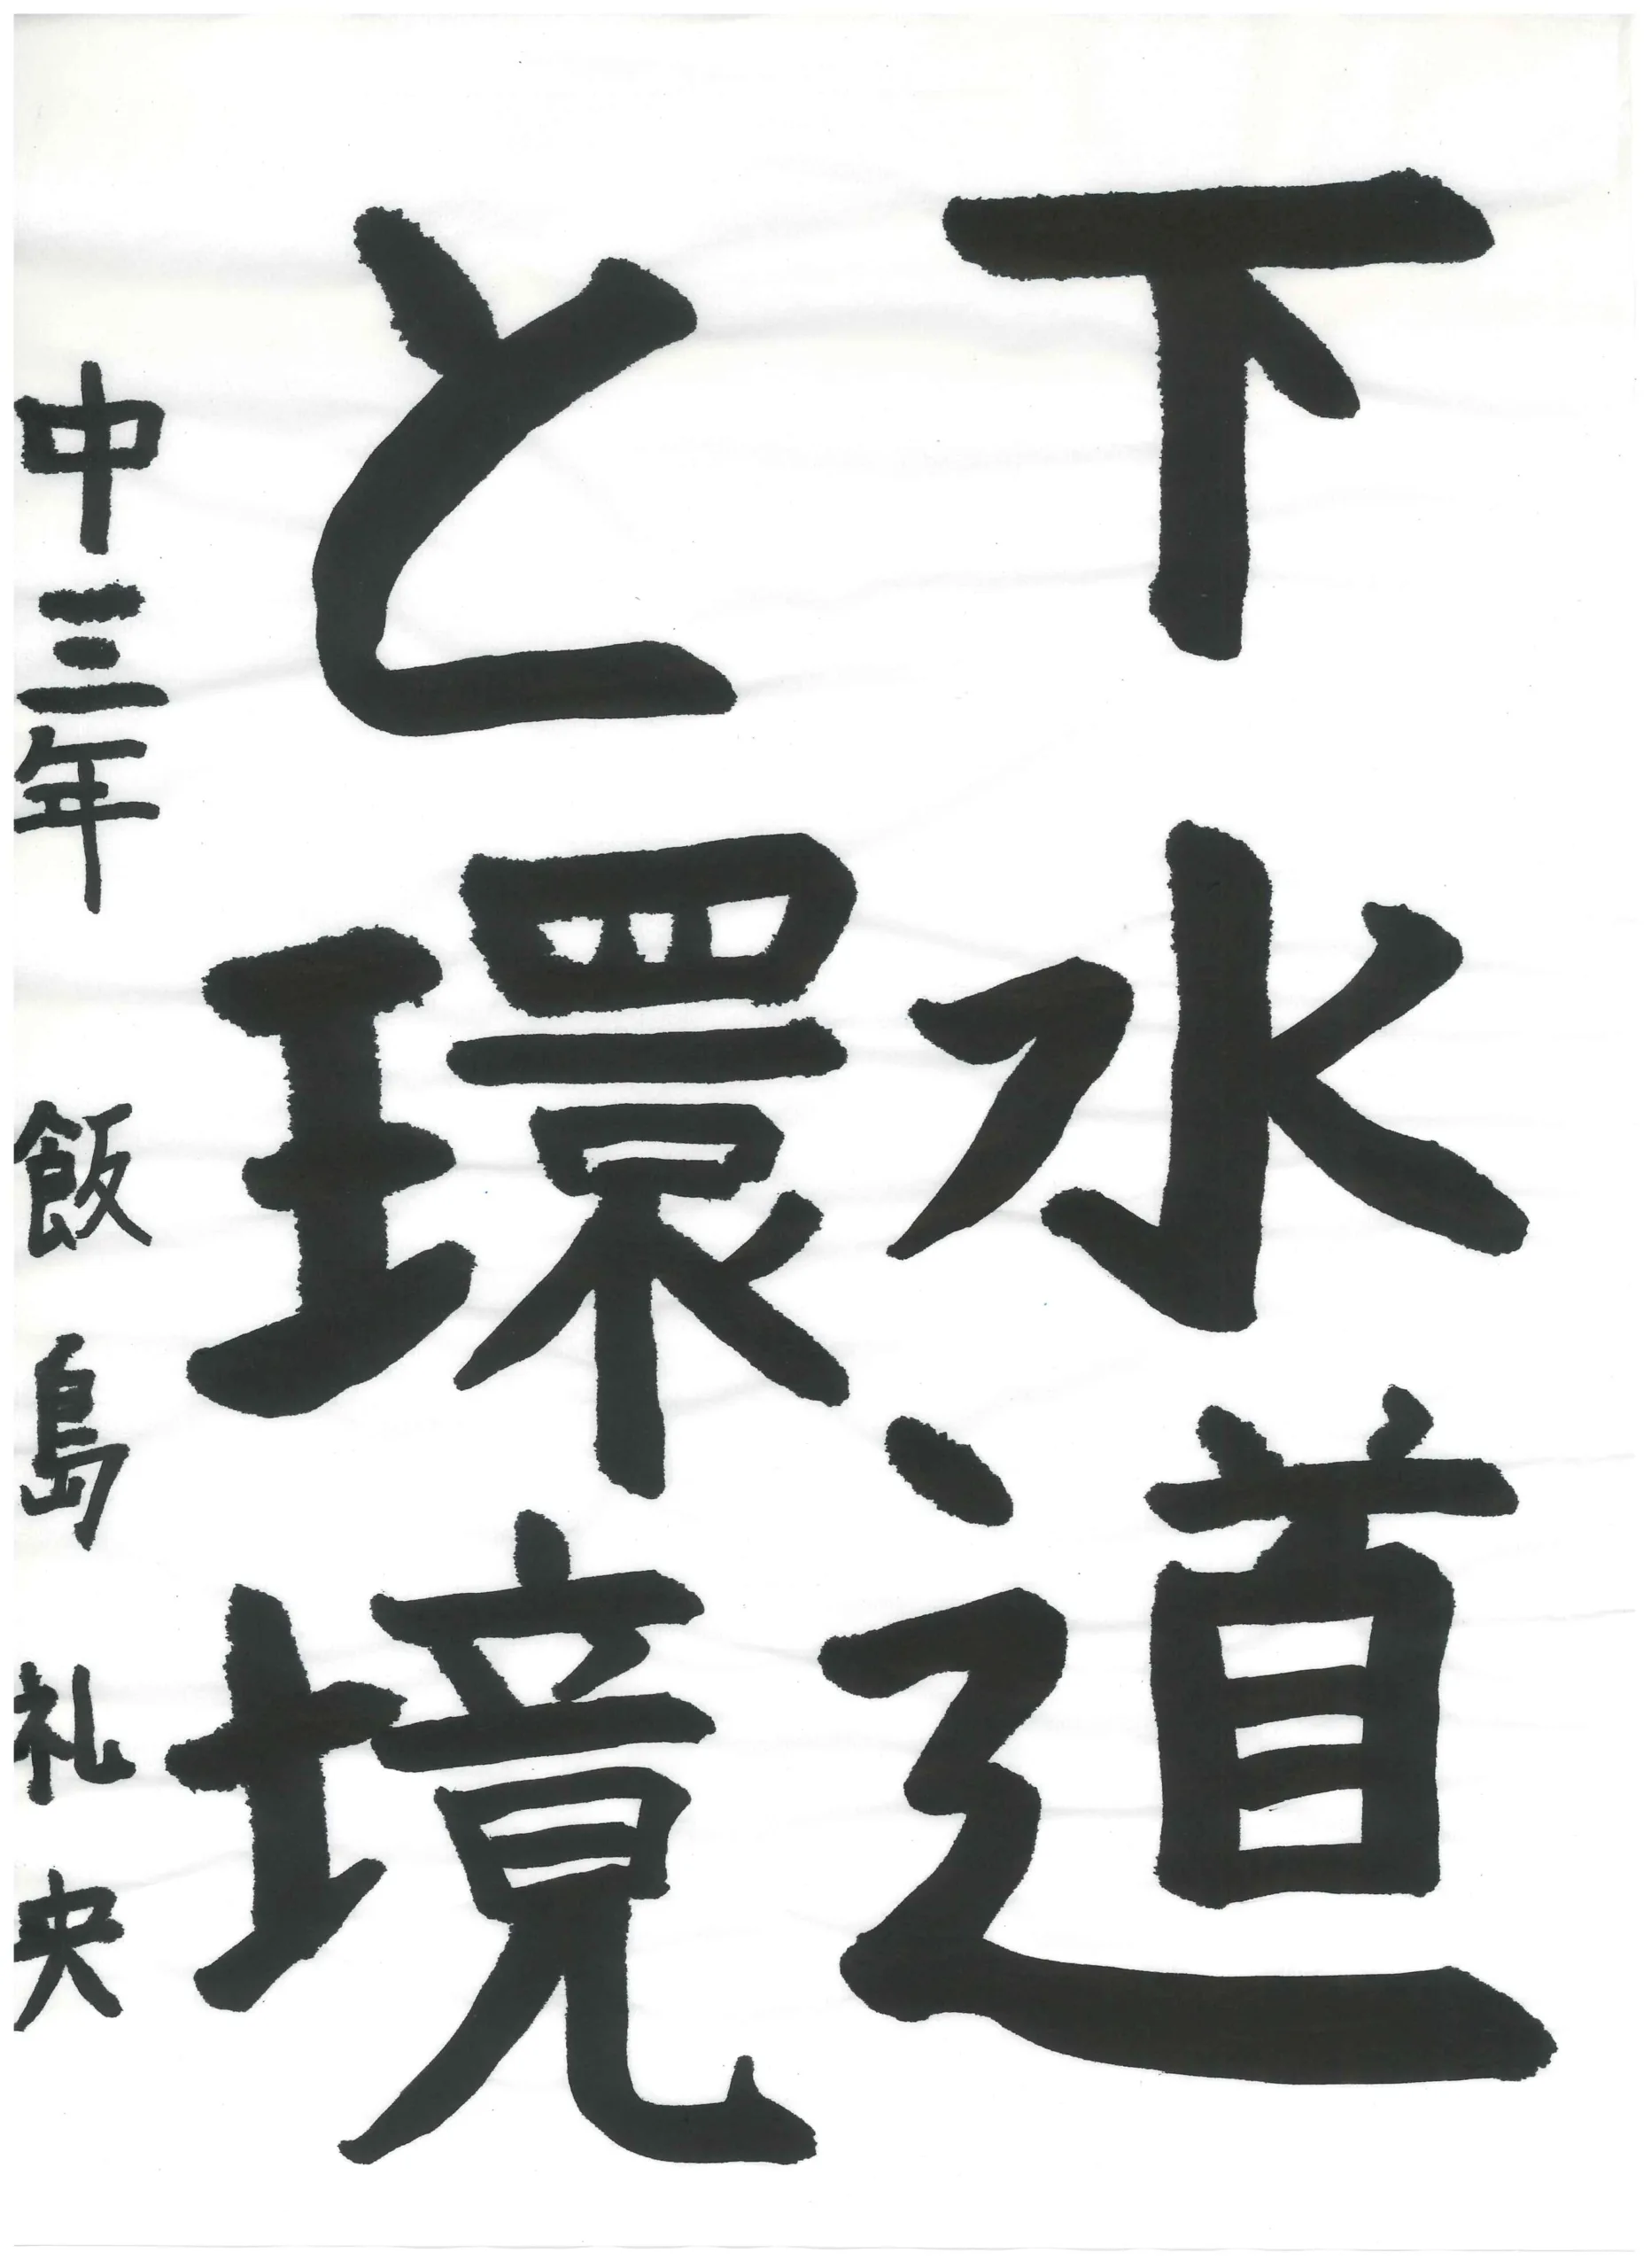 下水道
と環境
中三年 飯島 礼央